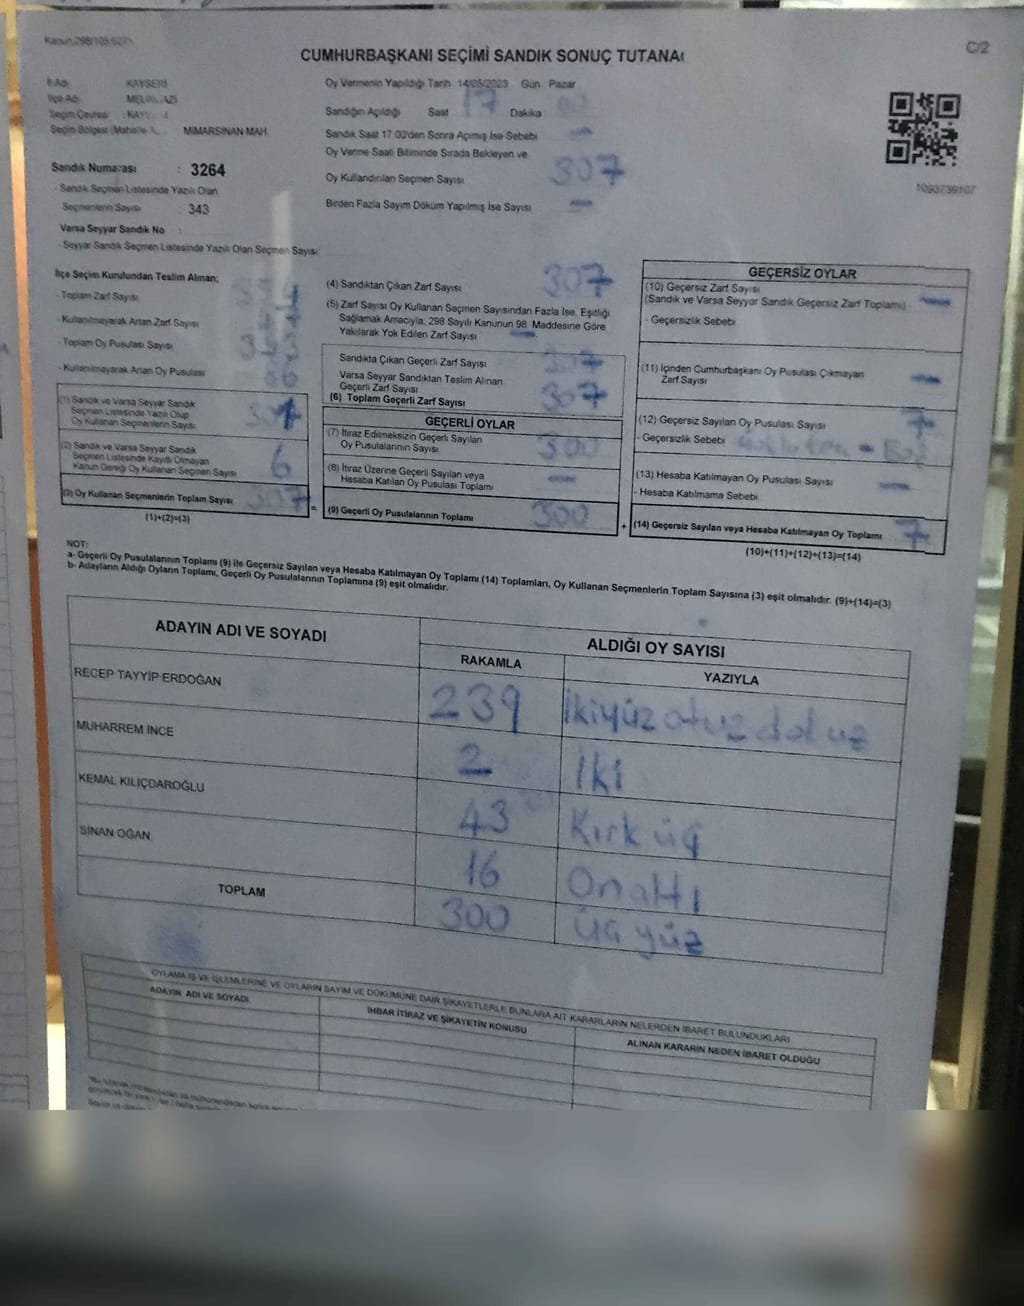 C/2
CUMHURBAŞKANI SEÇİMİ SANDIK SONUÇ TUTANA
İl Adı : KAYSERİ
İlçe Adı
Seçim Çevresi
Seçim Bölgesi (Mahalle MİMARSİNAN MAH.
Sandık Numarası : 3264
- Sandık Seçmen Listesinde Yazılı Olan
Seçmenlerin Sayısı : 343
Varsa Seyyar Sandık No :
- Seyyar Sandık Seçmen Listesinde Yazılı Olan Seçmen Sayısı:
Oy Vermenin Yapıldığı Tarih 14/05/2023 Gün Pazar
Sandığın Açıldığı Saat 17 Dakika
Sandık Saat 17:00'den Sonra Açımış İse Sebebi
Oy Verme Saati Bitiminde Sırada Bekleyen ve
Oy Kullandırılan Seçmen Sayısı 307
Birden Fazla Sayım Döküm Yapılmış İse Sayısı —
1093739107
İlçe Seçim Kurulundan Teslim Alınan;
- Toplam Zarf Sayısı
- Kullanılmayarak Artan Zarf Sayısı
- Toplam Oy Pusulası Sayısı
- Kullanılmayarak Artan Oy Pusulası
(1) Sandık ve Varsa Seyyar Sandık
Seçmen Listesinde Yazılı Olup
Oy Kullanan Seçmenlerin Sayısı
(2) Sandık ve Varsa Seyyar Sandık
Seçmen Listesinde Kayıtlı Olmayan
Kanun Gereği Oy Kullanan Seçmen Sayısı 6
(3) Oy Kullanan Seçmenlerin Toplam Sayısı 307
(1)+(2)=(3)
(4) Sandıktan Çıkan Zarf Sayısı 307
(5) Zarf Sayısı Oy Kullanan Seçmen Sayısından Fazla İse, Eşitliği
Sağlamak Amacıyla, 298 Sayılı Kanunun 98. Maddesine Göre
Yakılarak Yok Edilen Zarf Sayısı —
Sandıkta Çıkan Geçerli Zarf Sayısı 307
Varsa Seyyar Sandıktan Teslim Alınan
Geçerli Zarf Sayısı
(6) Toplam Geçerli Zarf Sayısı 307
GEÇERLİ OYLAR
(7) İtiraz Edilmeksizin Geçerli Sayılan
Oy Pusulalarının Sayısı 300
(8) İtiraz Üzerine Geçerli Sayılan veya
Hesaba Katılan Oy Pusulası Toplamı —
=
(9) Geçerli Oy Pusulalarının Toplamı 300
+
GEÇERSİZ OYLAR
(10) Geçersiz Zarf Sayısı
(Sandık ve Varsa Seyyar Sandık Geçersiz Zarf Toplamı) —
- Geçersizlik Sebebi
(11) İçinden Cumhurbaşkanı Oy Pusulası Çıkmayan
Zarf Sayısı —
(12) Geçersiz Sayılan Oy Pusulası Sayısı 7
- Geçersizlik Sebebi
(13) Hesaba Katılmayan Oy Pusulası Sayısı —
- Hesaba Katılmama Sebebi
(14) Geçersiz Sayılan veya Hesaba Katılmayan Oy Toplamı 7
(10)+(11)+(12)+(13)=(14)
NOT:
a- Geçerli Oy Pusulalarının Toplamı (9) ile Geçersiz Sayılan veya Hesaba Katılmayan Oy Toplamı (14) Toplamları, Oy Kullanan Seçmenlerin Toplam Sayısına (3) eşit olmalıdır. (9)+(14)=(3)
b- Adayların Aldığı Oyların Toplamı, Geçerli Oy Pusulalarının Toplamına (9) eşit olmalıdır.
ADAYIN ADI VE SOYADI
ALDIĞI OY SAYISI
RAKAMLA YAZIYLA
RECEP TAYYİP ERDOĞAN 239 İkiyüz otuz dokuz
MUHARREM İNCE 2 İki
KEMAL KILIÇDAROĞLU 43 Kırk üç
SİNAN OĞAN 16 On altı
TOPLAM 300 Üç yüz
OYLAMA İŞ VE İŞLEMLERİNE VE OYLARIN SAYIM VE DÖKÜMÜNE DAİR ŞİKAYETLERLE BUNLARA AİT KARARLARIN NELERDEN İBARET BULUNDUKLARI
ADAYIN ADI VE SOYADI
İHBAR İTİRAZ VE ŞİKAYETİN KONUSU
ALINAN KARARIN NEDEN İBARET OLDUĞU